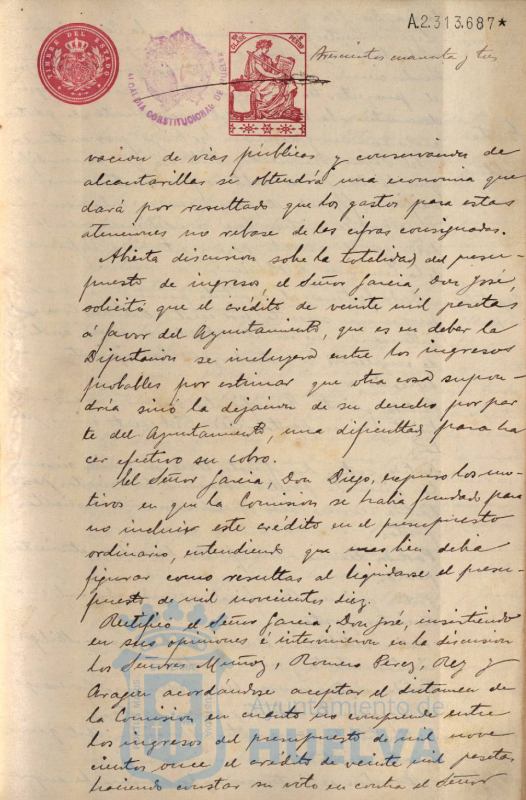 A.2.313.687*
TIMBRE DEL ESTADO
ALCALDIA CONSTITUCIONAL DE HUELVA
CLASE
PESETA
trescientos cuarenta y tres
vacion de vias públicas y conservacion de
alcantarillas se obtendrá una economia que
dará por resultado que los gastos para estas
atenciones no rebase de las cifras consignadas.
Abierta discusion sobre la totalidad del presu-
puesto de ingresos, el Señor Garcia, Don José,
solicitó que el crédito de veinte mil pesetas
á favor del Ayuntamiento, que es en deber la
Diputacion se incluyera entre los ingresos
probables por estimar que otra cosa supon-
dría sinó la dejacion de su derecho por par
te del Ayuntamiento, una dificultad para ha
cer efectivo su cobro.
El Señor Garcia, Don Diego, expuso los mo-
tivos en que la Comision se habia fundado para
no incluir este crédito en el presupuesto
ordinario, entendiendo que mas bien debia
figurar como resultas al liquidarse el presu-
puesto de mil novecientos diez.
Rectificó el Señor Garcia, Don José, insistiendo
en sus opiniones é intervinieron en la discusion
los Señores Muñoz, Romero Perez, Rey y
Aragon acordándose aceptar el dictamen de
la Comision en cuanto no comprende entre
los ingresos del presupuesto de mil nove
cientos once el crédito de veinte mil pesetas
haciendo constar su voto en contra el Señor
Ayuntamiento de
HUELVA